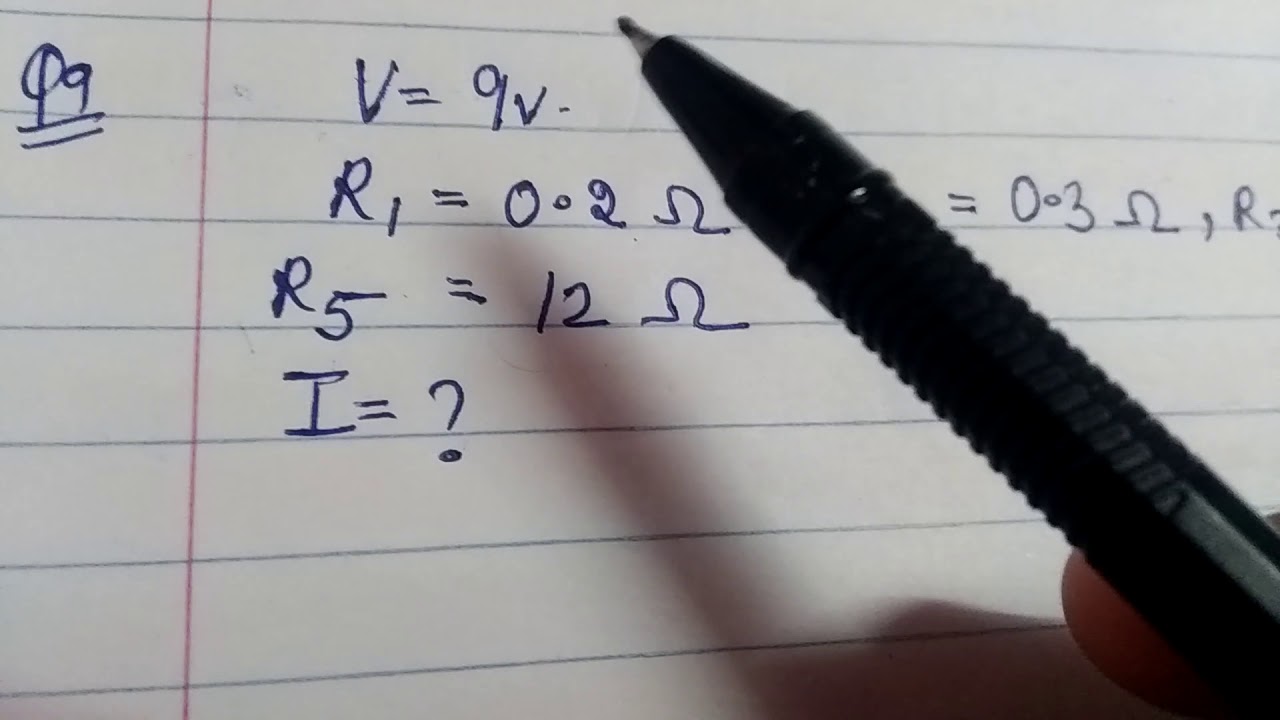 Q9
V = 9v.
R1 = 0.2 Ω = 0.3 Ω, R
R5 = 12 Ω
I = ?